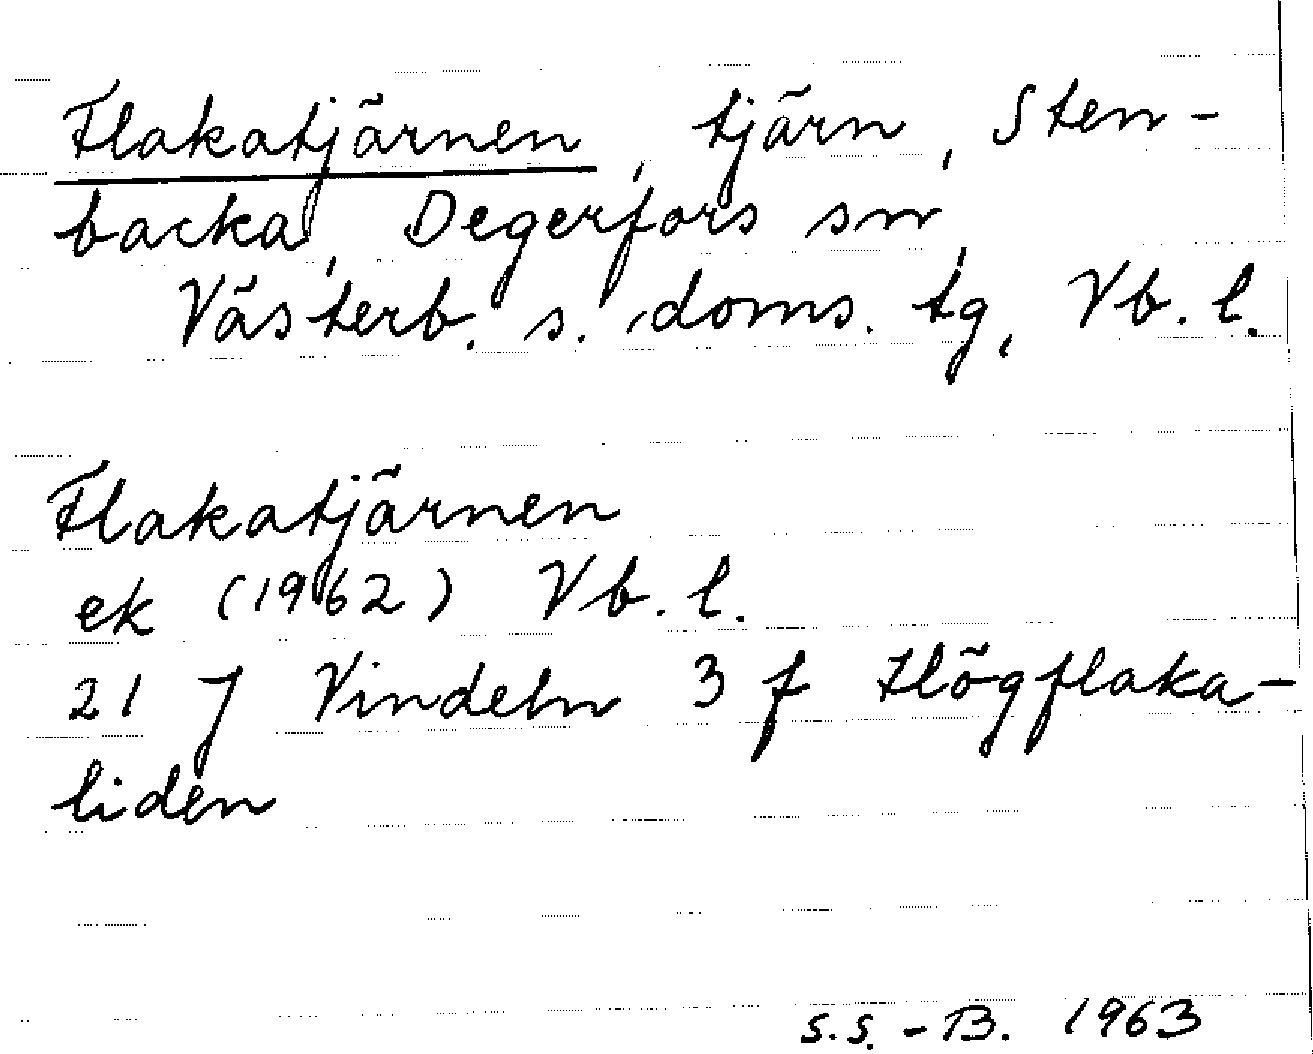 Flakatjärnen, tjärn, Sten-
backa, Degerfors sn,
Västerb. s. doms. tg, Vb. l.
Flakatjärnen
ek (1962) Vb. l.
21 J Vindeln 3 f Högflaka-
liden
S.S.-B. 1963